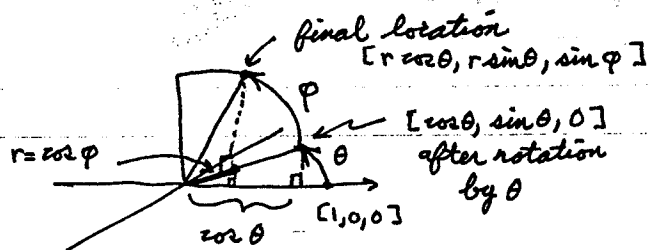 final location
[r cosθ, r sinθ, sin φ]
φ
[cosθ, sinθ, 0]
r = cos φ
θ
after rotation
by θ
[1,0,0]
cos θ